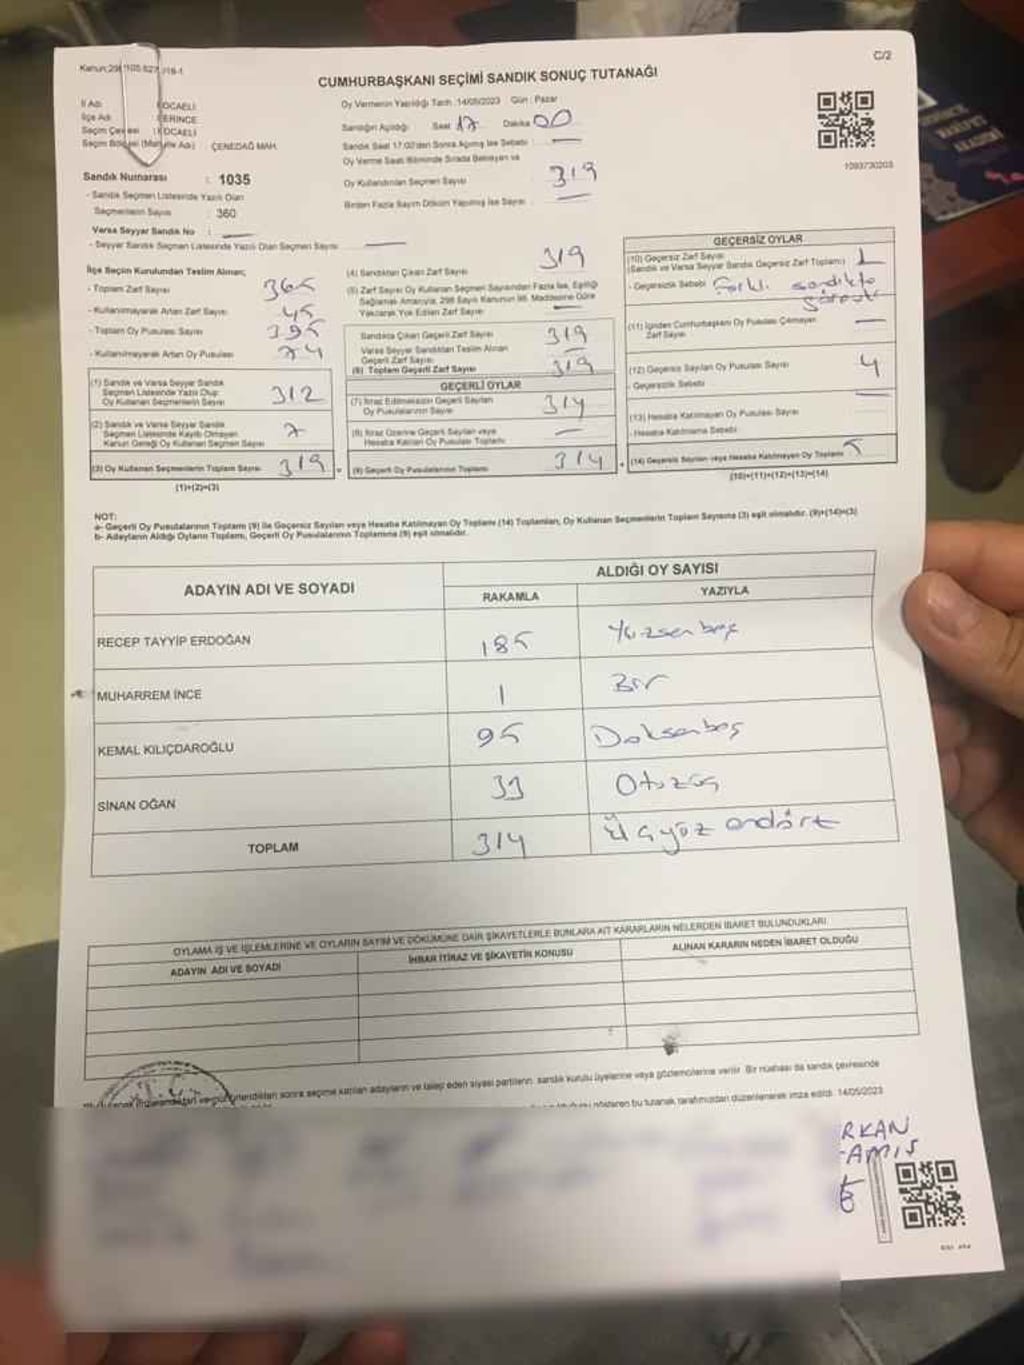 C/2
CUMHURBAŞKANI SEÇİMİ SANDIK SONUÇ TUTANAĞI
İl Adı : KOCAELİ
İlçe Adı : DERİNCE
Seçim Çevresi : KOCAELİ
Seçim Bölgesi (Mahalle Adı) ÇENEDAĞ MAH.
Sandık Numarası : 1035
- Sandık Seçmen Listesinde Yazılı Olan
Seçmenlerin Sayısı : 360
Varsa Seyyar Sandık No : —
- Seyyar Sandık Seçmen Listesinde Yazılı Olan Seçmen Sayısı —
Oy Vermenin Yapıldığı Tarih :14/05/2023 Gün : Pazar
Sandığın Açıldığı Saat 17 Dakika 00
Sandık Saat 17:00'den Sonra Açılmış İse Sebebi : —
Oy Verme Saati Bitiminde Sırada Bekleyen ve
Oy Kullandırılan Seçmen Sayısı 319
Birden Fazla Sayım Döküm Yapılmış İse Sayısı —
1093730203
İlçe Seçim Kurulundan Teslim Alınan;
- Toplam Zarf Sayısı 365
- Kullanılmayarak Artan Zarf Sayısı 45
- Toplam Oy Pusulası Sayısı 395
- Kullanılmayarak Artan Oy Pusulası 74
(1) Sandık ve Varsa Seyyar Sandık
Seçmen Listesinde Yazılı Olup
Oy Kullanan Seçmenlerin Sayısı 312
(2) Sandık ve Varsa Seyyar Sandık
Seçmen Listesinde Kayıtlı Olmayan
Kanun Gereği Oy Kullanan Seçmen Sayısı 7
(3) Oy Kullanan Seçmenlerin Toplam Sayısı 319
(1)+(2)=(3)
(4) Sandıktan Çıkan Zarf Sayısı 319
(5) Zarf Sayısı Oy Kullanan Seçmen Sayısından Fazla İse, Eşitliği
Sağlamak Amacıyla, 298 Sayılı Kanunun 98. Maddesine Göre
Yakılarak Yok Edilen Zarf Sayısı —
Sandıkta Çıkan Geçerli Zarf Sayısı 319
Varsa Seyyar Sandıktan Teslim Alınan
Geçerli Zarf Sayısı —
(6) Toplam Geçerli Zarf Sayısı 319
GEÇERLİ OYLAR
(7) İtiraz Edilmeksizin Geçerli Sayılan
Oy Pusulalarının Sayısı 314
(8) İtiraz Üzerine Geçerli Sayılan veya
Hesaba Katılan Oy Pusulası Toplamı —
(9) Geçerli Oy Pusulalarının Toplamı 314
GEÇERSİZ OYLAR
(10) Geçersiz Zarf Sayısı
(Sandık ve Varsa Seyyar Sandık Geçersiz Zarf Toplamı) 1
- Geçersizlik Sebebi Farklı sandıkta
(11) İçinden Cumhurbaşkanı Oy Pusulası Çıkmayan
Zarf Sayısı —
(12) Geçersiz Sayılan Oy Pusulası Sayısı 4
- Geçersizlik Sebebi —
(13) Hesaba Katılmayan Oy Pusulası Sayısı
- Hesaba Katılmama Sebebi
(14) Geçersiz Sayılan veya Hesaba Katılmayan Oy Toplamı 5
(10)+(11)+(12)+(13)=(14)
NOT:
a- Geçerli Oy Pusulalarının Toplamı (9) ile Geçersiz Sayılan veya Hesaba Katılmayan Oy Toplamı (14) Toplamları, Oy Kullanan Seçmenlerin Toplam Sayısına (3) eşit olmalıdır. (9)+(14)=(3)
b- Adayların Aldığı Oyların Toplamı, Geçerli Oy Pusulalarının Toplamına (9) eşit olmalıdır.
ADAYIN ADI VE SOYADI ALDIĞI OY SAYISI
RAKAMLA YAZIYLA
RECEP TAYYİP ERDOĞAN 185 Yüzsenbeş
MUHARREM İNCE 1 Bir
KEMAL KILIÇDAROĞLU 95 Doksanbeş
SİNAN OĞAN 33 Otuzüç
TOPLAM 314 Üçyüz ondört
OYLAMA İŞ VE İŞLEMLERİNE VE OYLARIN SAYIM VE DÖKÜMÜNE DAİR ŞİKAYETLERLE BUNLARA AİT KARARLARIN NELERDEN İBARET BULUNDUKLARI
ADAYIN ADI VE SOYADI İHBAR İTİRAZ VE ŞİKAYETİN KONUSU ALINAN KARARIN NEDEN İBARET OLDUĞU
sonra seçime katılan adayların ve talep eden siyasi partilerin sandık kurulu üyelerine veya gözlemcilerine verilir. Bir nüshası da sandık çevresinde
gösteren bu tutanak tarafımızdan düzenlenerek imza edildi. 14/05/2023
RKAN
AMIŞ